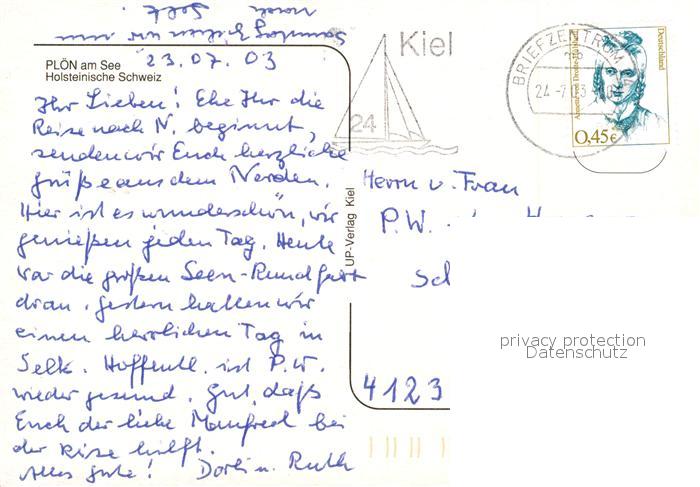 Samstag fahren wir nun
noch
Selk.
23.07.03
PLÖN am See
Holsteinische Schweiz
Ihr Lieben! Ehe Ihr die
Reise nach N. beginnt,
senden wir Euch herzliche
Grüße aus dem Norden.
Hier ist es wunderschön, wir
genießen jeden Tag. Heute
war die großen Seen-Rundfahrt
dran. Gestern hatten wir
einen herrlichen Tag in
Selk. Hoffentl. ist P.W.
wieder gesund. Gut, daß
Euch der liebe Manfred bei
der Reise hilft.
Alles Gute! Dorli u. Ruth
UP-Verlag Kiel
Kiel
24
BRIEFZENTRUM 24
mb
24-7.03
Deutschland
0,45€
Herrn u. Frau
P.W.
Sch
4123
privacy protection
Datenschutz